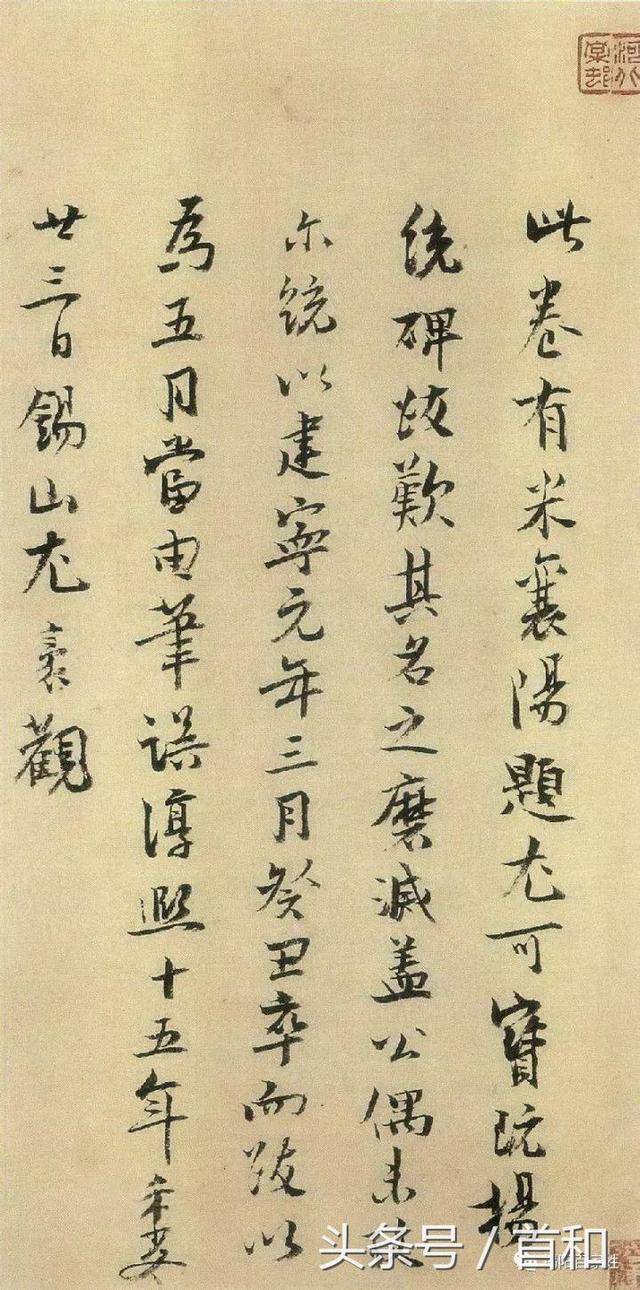 河北棠邨
此卷有米襄陽題尤可寶玩楊
統碑跋歎其名之磨滅蓋公偶未
尔統以建寧元年三月癸丑卒而跋以
為五月當由筆誤淳熙十五年季夏
廿三日錫山尤袤觀
头条号 / 首和